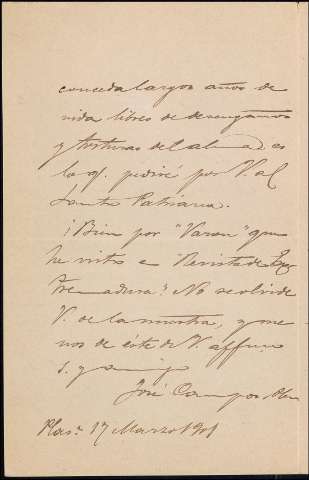 conceda largos años de
vida libres de desengaños
y torturas del alma es
lo q. pediré por V. al
Santo Patriarca.
¡Bien por "Varon" que
he visto en Revista de Ex
tremadura! No se olvide
V. de la nuestra, y me
nos de éste de V. affmo
s. y amigo
José Campos
Plas.ª 17 Marzo 1901